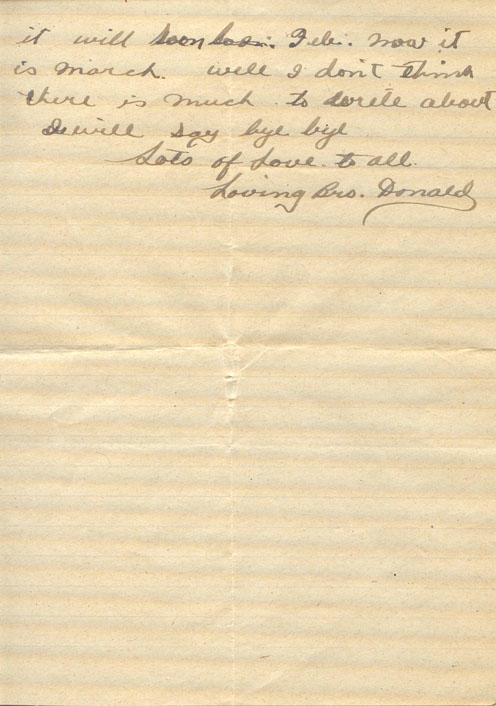 it will soon Feb. now it
is march. well I don't think
there is much to write about
So will say bye bye
Lots of Love. to all.
Loving Bro. Donald